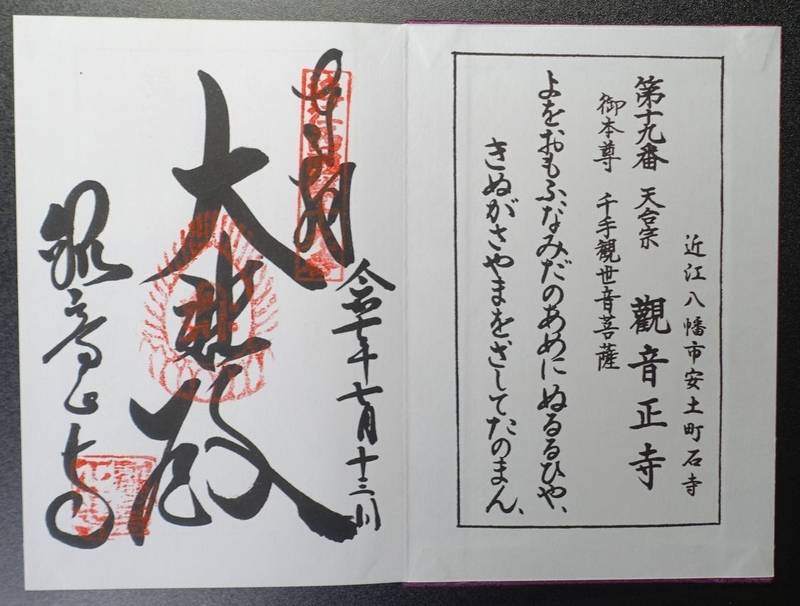 近江八幡市安土町石寺
第十九番 天台宗 觀音正寺
御本尊 千手觀世音菩薩
よをおもふなみだのあめにぬるるひや、
きぬがさやまをさしてたのまん、
奉拝
七月十三日
大悲殿
観音正寺